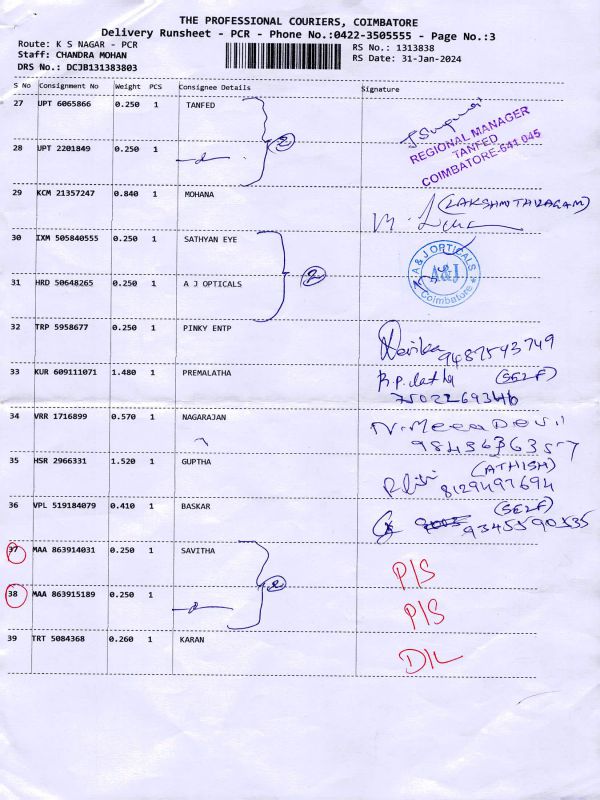 THE PROFESSIONAL COURIERS, COIMBATORE
Delivery Runsheet - PCR - Phone No.:0422-3505555 - Page No.:3
Route: K S NAGAR - PCR
RS No.: 1313838
Staff: CHANDRA MOHAN
RS Date: 31-Jan-2024
DRS No.: DCJB131383803
S No Consignment No Weight PCS Consignee Details Signature
27 UPT 6065866 0.250 1 TANFED
REGIONAL MANAGER
TANFED
COIMBATORE-641 045
28 UPT 2201849 0.250 1
2
29 KCM 21357247 0.840 1 MOHANA
(LAKSHMI THIYAGAM)
30 IXM 505840555 0.250 1 SATHYAN EYE
A & J OPTICALS
A&J
Coimbatore
31 HRD 50648265 0.250 1 A J OPTICALS
2
32 TRP 5958677 0.250 1 PINKY ENTP
9487543749
33 KUR 609111071 1.480 1 PREMALATHA
(SELF)
34 VRR 1716899 0.570 1 NAGARAJAN
N.Meena Devi
35 HSR 2966331 1.520 1 GUPTHA
(ATHISH)
8129497694
36 VPL 519184079 0.410 1 BASKAR
(SELF)
9345590535
37 MAA 863914031 0.250 1 SAVITHA
P/S
38 MAA 863915189 0.250 1
2
P/S
39 TRT 5084368 0.260 1 KARAN
D/L